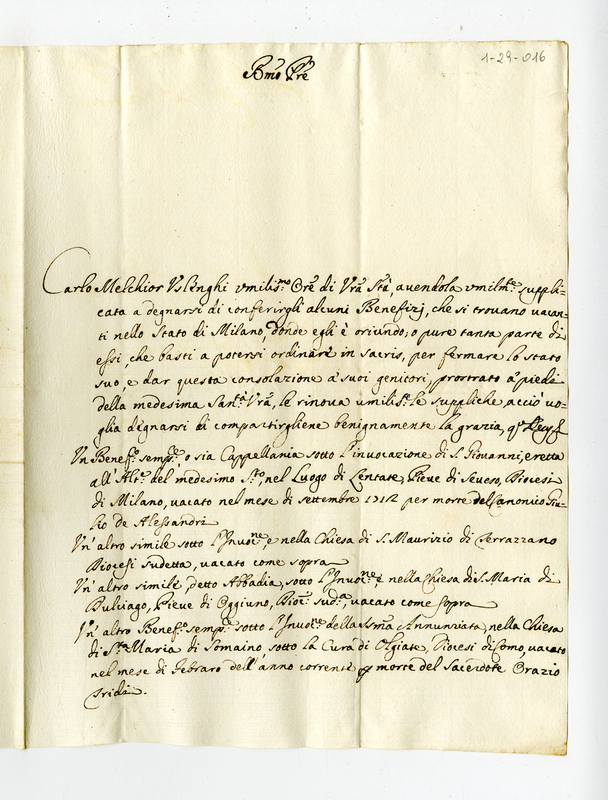 1-29-016
Bmo Pre
Carlo Melchior Uslenghi umiliss.mo Ore di Vra Stà, avendola umilm.te suppli=
cata a degnarsi di conferirgli alcuni Benefizj, che si trovano vacan=
ti nello Stato di Milano, donde egli è oriundo; o pure tanta parte di
essi, che basti a potersi ordinare in sacris, per fermare lo stato
suo, e dar questa consolazione a' suoi genitori, prostrato a' piedi
della medesima San.tà Vra, le rinova umilis.e le suppliche, acciò vo=
glia degnarsi di compartirgliene benignamente la grazia, q
Un Benef.o semp.e o sia Cappellania sotto l'invocazione di S. Giovanni, eretta
all'Alt.e del medesimo S.to, nel Luogo di Lentate, Pieve di Seveso, Diocesi
di Milano, vacato nel mese di settembre 1712 per morte del Canonico Giu=
lio de Alessandri
Un' altro simile sotto l'Invoc.ne, e nella Chiesa di S. Maurizio di Terrazzano
Diocesi sudetta, vacato come sopra
Un' altro simile, detto Abbadia, sotto l'Invoc.ne, e nella Chiesa di S. Maria di
Bulciago, Pieve di Oggiuno, Dioc. sud.a, vacato come sopra
Un' altro Benef.o semp.e sotto l'Invoc.ne della Ssma Annunziata, nella Chiesa
di S.ta Maria di Somaino, sotto la Cura di Olgiate, Diocesi di Como, vacato
nel mese di Febraro dell'anno corrente p morte del Sacerdote Orazio